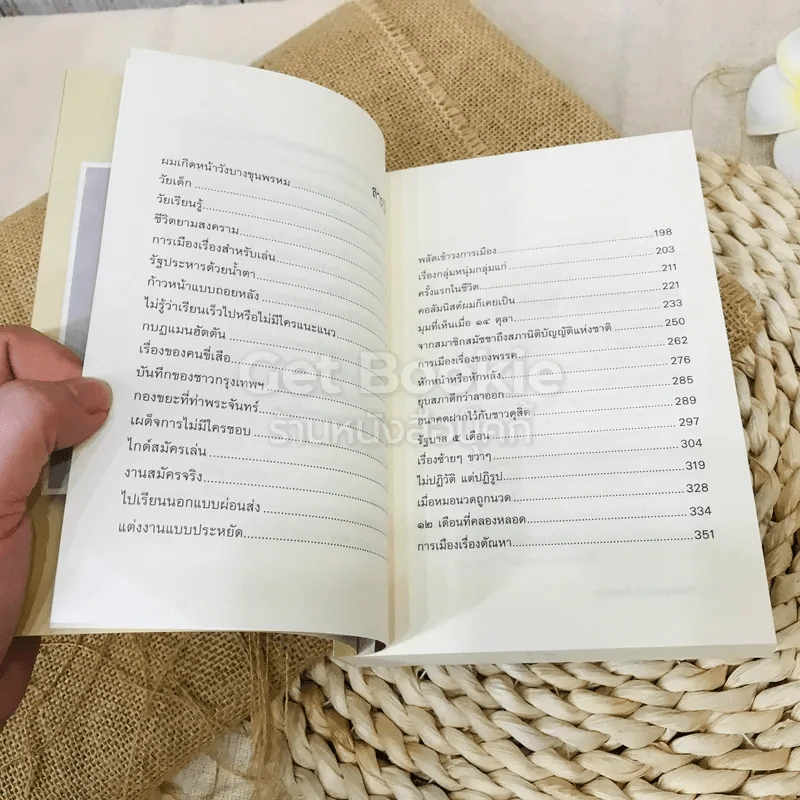 ผมเกิดหน้าวังบางขุนพรหม
วัยเด็ก
วัยเรียนรู้
ชีวิตยามสงคราม
การเมืองเรื่องสำหรับเล่น
รัฐประหารด้วยน้ำตา
ก้าวหน้าแบบถอยหลัง
ไม่รู้ว่าเรียนเร็วไปหรือไม่มีใครแนะแนว
กบฏแมนฮัตตัน
เรื่องของคนขี่เสือ
บันทึกของชาวกรุงเทพฯ
กองขยะที่ท่าพระจันทร์
เผด็จการไม่มีใครชอบ
ไกด์สมัครเล่น
งานสมัครจริง
ไปเรียนนอกแบบผ่อนส่ง
แต่งงานแบบประหยัด
พลัดเข้าวงการเมือง 198
เรื่องกลุ่มหนุ่มกลุ่มแก่ 203
ครั้งแรกในชีวิต 211
คอลัมนิสต์ผมก็เคยเป็น 221
มุมที่เห็นเมื่อ ๑๔ ตุลา 233
จากสมาชิกสมัชชาถึงสภานิติบัญญัติแห่งชาติ 250
การเมืองเรื่องของพรรค 262
หักหน้าหรือหักหลัง 276
ยุบสภาดีกว่าลาออก 285
อนาคตฝากไว้กับชาวดุสิต 289
รัฐบาล ๕ เดือน 297
เรื่องซ้ายๆ ขวาๆ 304
ไม่ปฏิวัติ แต่ปฏิรูป 319
เมื่อหมอนวดถูกนวด 328
๑๒ เดือนที่คลองหลอด 334
การเมืองเรื่องตัณหา 351
Get Bookie
ร้านหนังสือเก็ทบุ๊คกี้